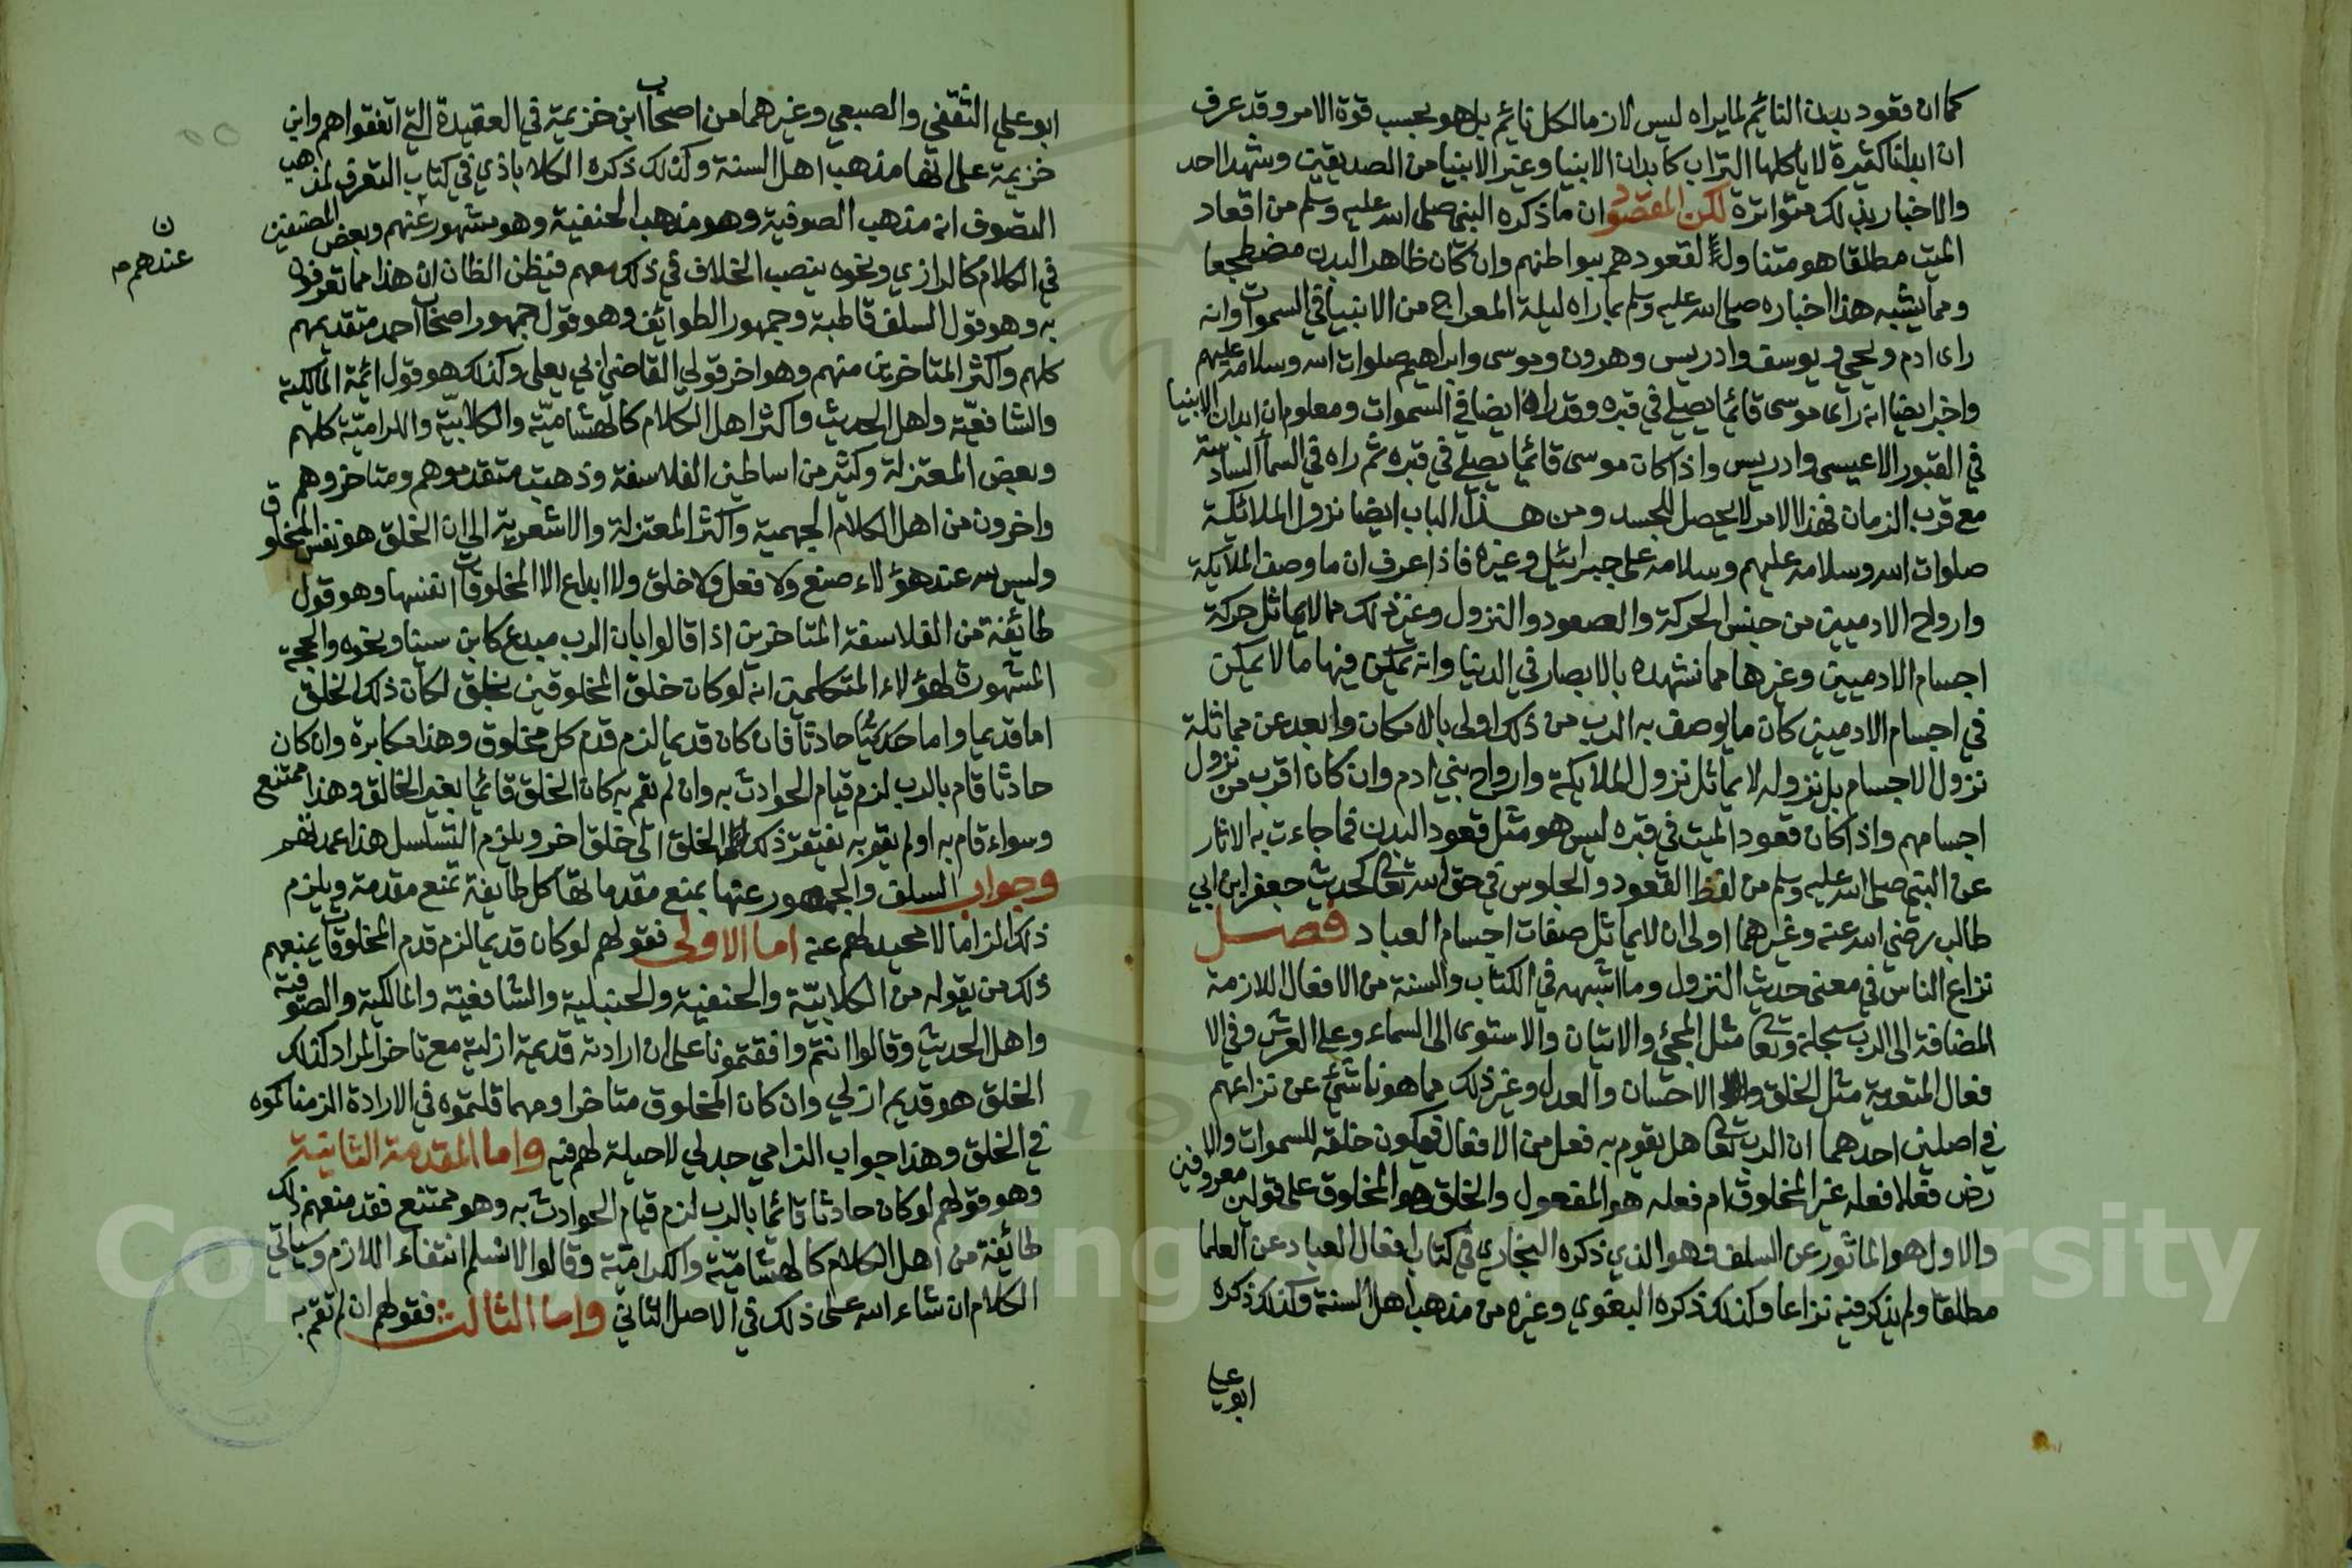 كما ان قعود بدن النائم لما يراه ليس لازما لكل نائم بل هو بحسب قوة الامر وقد عرف
ان ابدانا كثيرة لا ياكلها التراب كابدان الانبيا وغير الانبيا من الصديقين وشهدا احد
والاخبار بذلك متواترة لكن المقصود ان ما ذكره النبي صلى الله عليه وسلم من اقعاد
الميت مطلقا هو متناول لقعودهم ببواطنهم وان كان ظاهر البدن مضطجعا
ومما يشبه هذا اخباره صلى الله عليه وسلم بما راه ليلة المعراج من الانبيا في السموات وانه
راى ادم ويحيى ويوسف وادريس وهرون وموسى وابراهيم صلوات الله وسلامه عليهم
واخبر ايضا انه راى موسى قائما يصلي في قبره وقد راه ايضا في السموات ومعلوم ان ابدان الانبيا
في القبور الا عيسى وادريس واذا كان موسى قائما يصلي في قبره ثم راه في السما السادسة
مع قرب الزمان فهذا الامر لا يحصل للجسد ومن هذا الباب ايضا نزول الملائكة
صلوات الله وسلامه عليهم وسلامه على جبرائيل وغيره فاذا عرف ان ما وصف الملائكة
وارواح الادميين من جنس الحركة والصعود والنزول وغير ذلك مما لا يماثل حركة
اجسام الادميين وغيرها مما نشهده بالابصار في الدنيا وانه يمكن فيها ما لا يمكن
في اجسام الادميين كان ما يوصف به الرب من ذلك اولى بالامكان وابعد عن مماثلة
نزول الاجسام بل نزوله لا يماثل نزول الملائكة وارواح بني ادم وان كان اقرب من نزول
اجسامهم واذا كان قعود الميت في قبره ليس هو مثل قعود البدن فما جاءت به الاثار
عن النبي صلى الله عليه وسلم من لفظ القعود والجلوس في حق الله تعالى كحديث جعفر ابن ابي
طالب رضي الله عنه وغيرهما اولى ان لا يماثل صفات اجسام العباد فصل
نزاع الناس في معنى حديث النزول وما اشبهه في الكتاب والسنة من الافعال اللازمة
المضافة الى الرب سبحانه وتعالى مثل المجئ والاتيان والاستوى الى السماء وعلى العرش وفي الا
فعال المتعدية مثل الخلق والاحسان والعدل وغير ذلك مما هو ناشئ عن نزاعهم
في اصلين احدهما ان الرب تعالى هل يقوم به فعل من الافعال فيكون خلقه للسموات والا
رض فعلا فعله غير المخلوق ام فعله هو المفعول والخلق هو المخلوق على قولين معروفين
والاول هو الماثور عن السلف وهو الذي ذكره البخاري في كتاب افعال العباد عن العلما
مطلقا ولم يذكر فيه نزاعا وكذلك ذكره البغوي وغيره من مذهب اهل السنة وكذلك ذكره
ابو علي
ابو علي الثقفي والصبعي وغيرهما من اصحاب ابن خزيمة في العقيدة التي اتفقوا هم وابن
خزيمة على انها مذهب اهل السنة وكذلك ذكره الكلاباذي في كتاب التعرف لمذهب
التصوف انه مذهب الصوفية وهو مذهب الحنفية وهو مشهور عنهم وبعض المصنفين
في الكلام كالرازي ونحوه ينصب الخلاف في ذلك معهم فيظن الظان ان هذا مما تفردوا
ن
عندهم م
به وهو قول السلف قاطبة وجمهور الطوائف وهو قول جمهور اصحاب احمد متقديمهم
كلهم واكثر المتاخرين منهم وهو اخر قولي القاضي ابي يعلى وكذلك هو قول ائمة المالكية
والشافعية واهل الحديث واكثر اهل الكلام كالهشامية والكلابية والكرامية كلهم
وبعض المعتزلة وكثير من اساطين الفلاسفة وذهبت متقدموهم ومتاخروهم
واخرون من اهل الكلام الجهمية واكثر المعتزلة والاشعرية الى ان الخلق هو نفس المخلوق
وليس لله عند هؤلاء صنع ولا فعل ولا خلق ولا ابداع الا المخلوقات انفسها وهو قول
طائفة من الفلاسفة المتاخرين اذا قالوا بان الرب مبدع كابن سينا ونحوه والحجة
المشهورة لهؤلاء المتكلمين انه لو كان خلق المخلوقين بخلق لكان ذلك الخلق
اما قديما واما حادثا فان كان قديما لزم قدم كل مخلوق وهذا مكابرة وان كان
حادثا قام بالرب لزم قيام الحوادث به وان لم يقم به كان الخلق قائما بغير الخالق وهذا ممتنع
وسواء قام به او لم يقم به يفتقر ذلك الخلق الى خلق اخر ويلزم التسلسل هذا عمدتهم
وجواب السلف والجمهور عنها بمنع مقدماتها كل طايفة تمنع مقدمة ويلزم
ذلك الزاما لا محيد لهم عنه اما الاولى فقولهم لو كان قديما لزم قدم المخلوقات يمنعهم
ذلك من يقوله من الكلابية والحنفية والحنبلية والشافعية والمالكية والصوفية
واهل الحديث وقالوا انتم وافقتمونا على ان ارادته قديمة ازلية مع تاخر المراد كذلك
الخلق هو قديم ازلي وان كان المخلوق متاخرا ومهما قلتموه في الارادة الزمناكموه
في الخلق وهذا جواب الزامي جدلي لا حيلة لهم فيه واما المقدمة الثانية
وهو قولهم لو كان حادثا قائما بالرب لزم قيام الحوادث به وهو ممتنع فقد منعهم ذلك
طائفة من اهل الكلام كالهشامية والكرامية وقالوا لا نسلم انتفاء اللازم وسياتي
الكلام ان شاء الله على ذلك في الاصل الثاني واما الثالث فقولهم ان لم تقم به